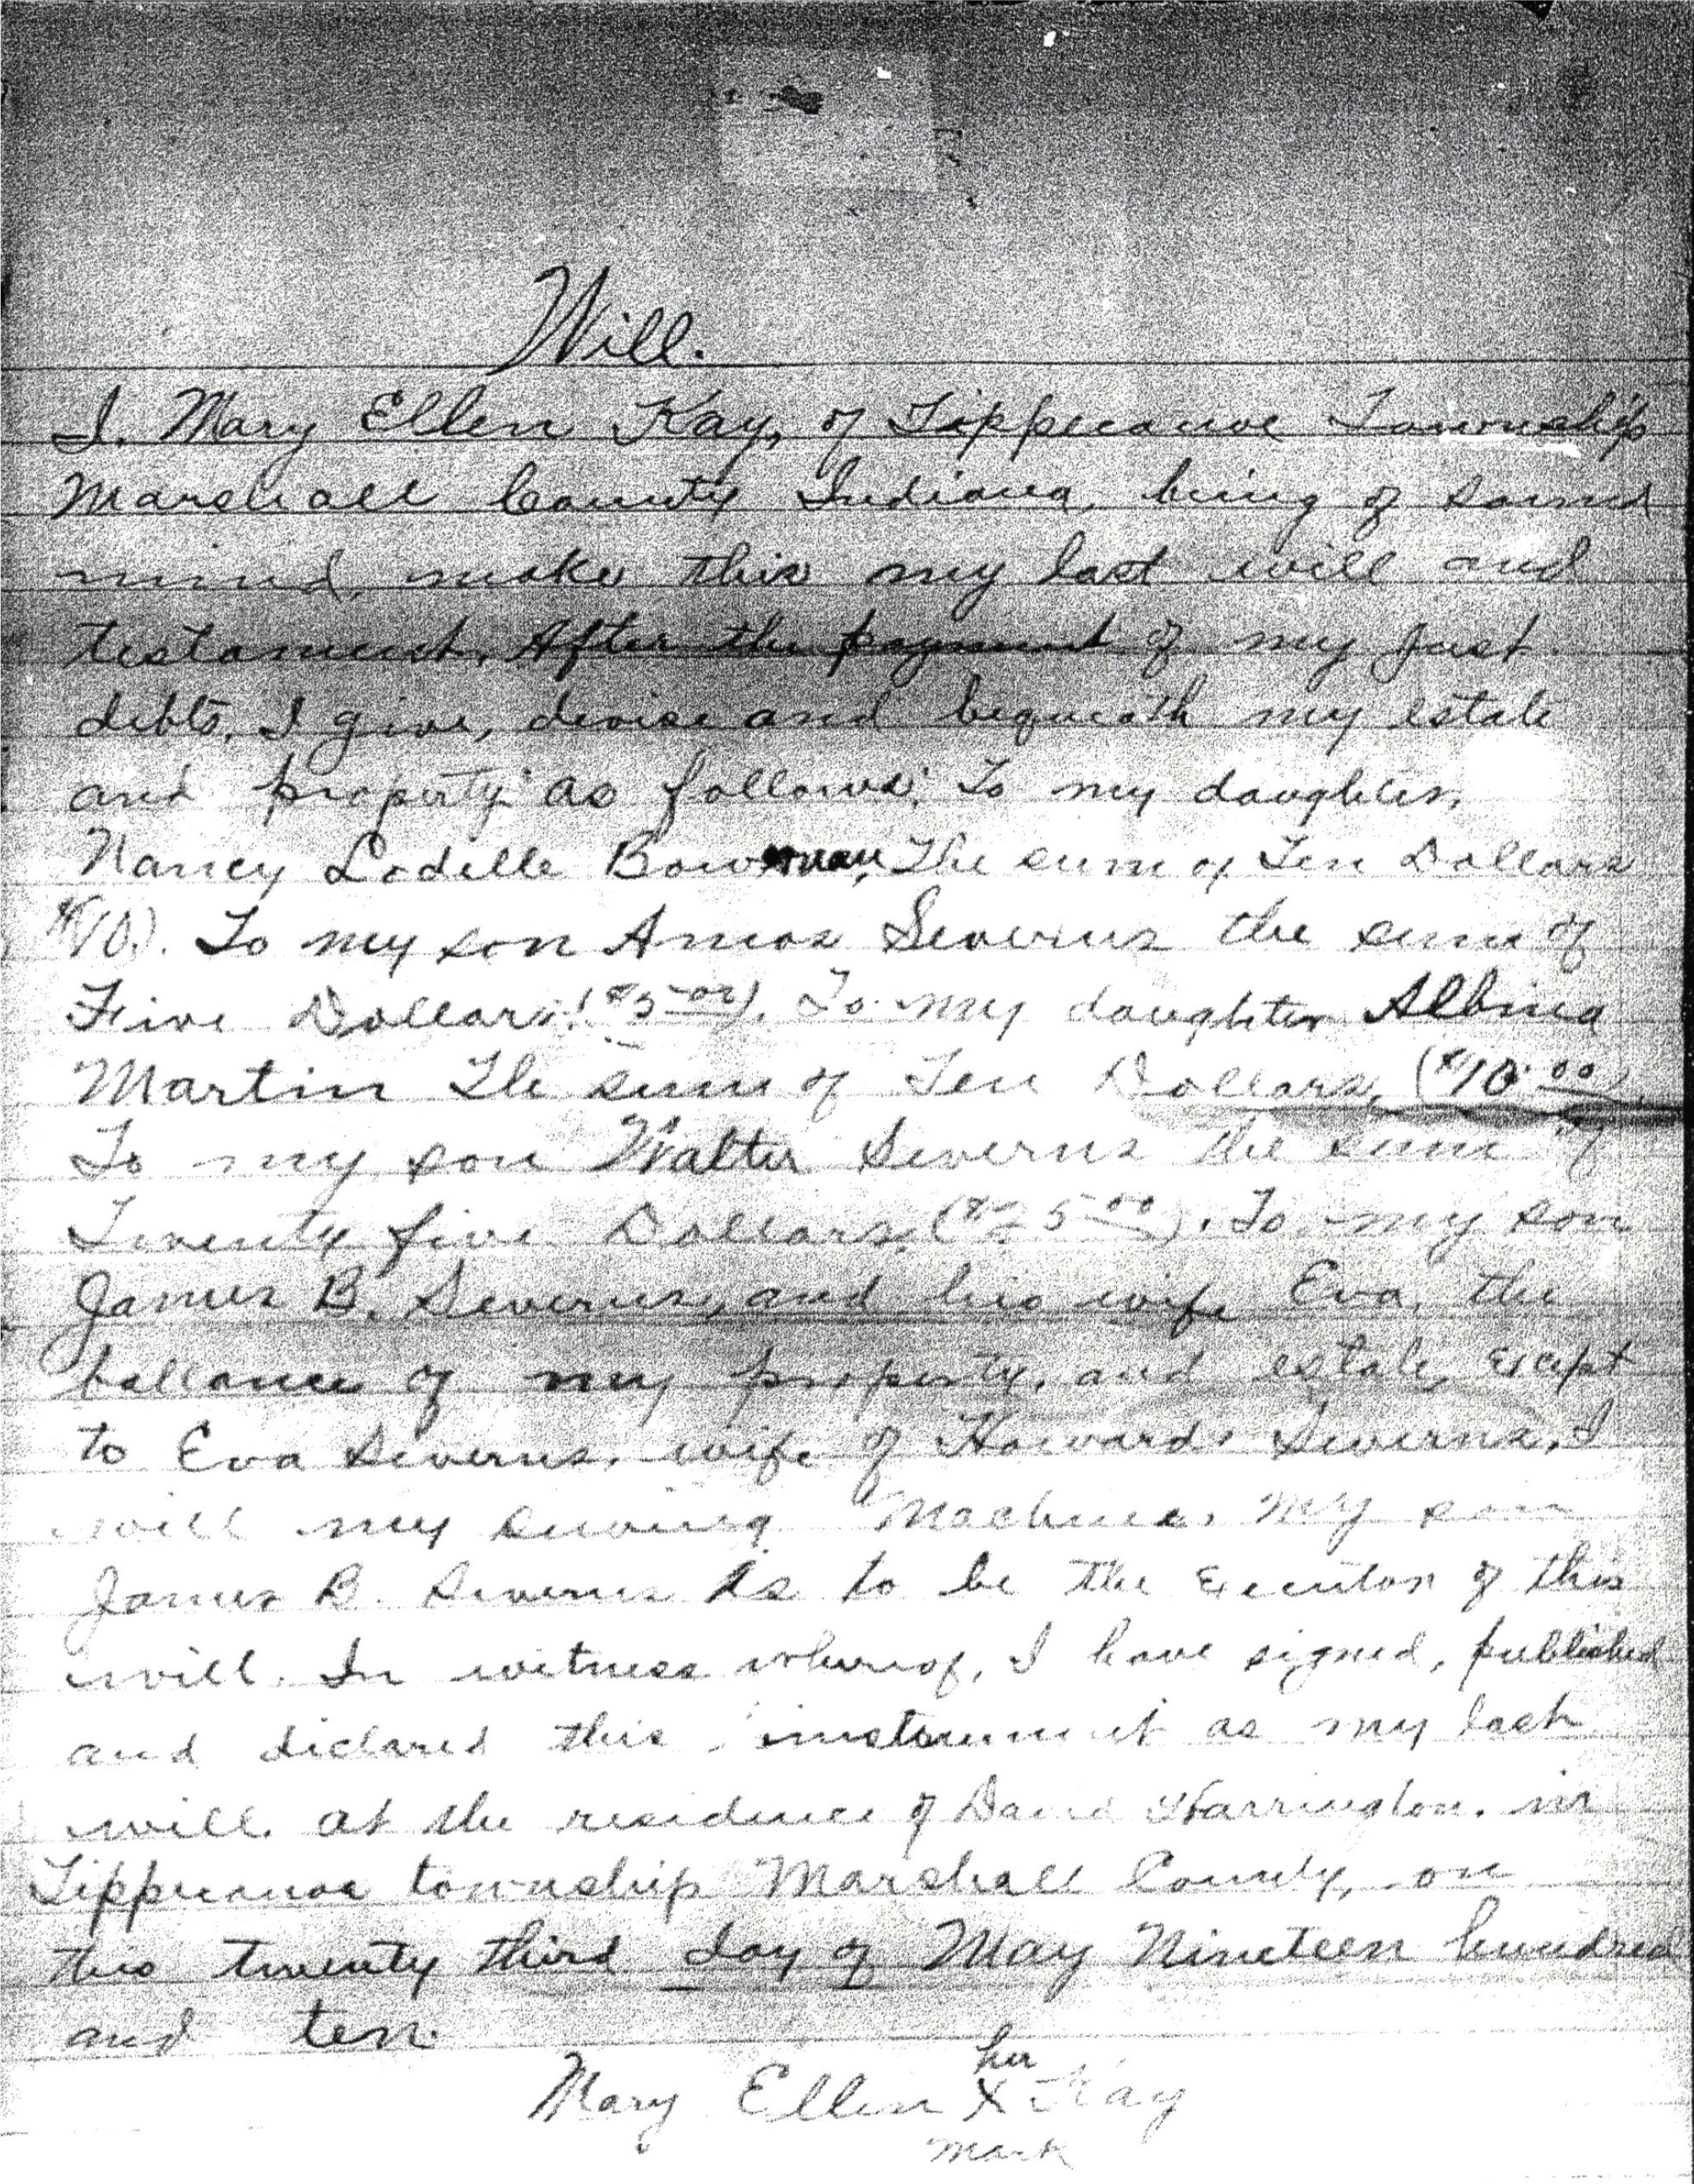 Will.
I, Mary Ellen Kay, of Tippecanoe Township
Marshall County Indiana, being of sound
mind, make this my last will and
testament. After the payment of my just
debts, I give, devise and bequeath my estate
and property as follows: To my daughter,
Nancy Lodelle Bowman, The sum of Ten Dollars
$10.). To my son Amos Severns the sum of
Five Dollars ($5.00). To my daughter Albina
Martin The sum of Ten Dollars, ($10.00)
To my son Walter Severns the sum of
Twenty five Dollars ($25.00). To my son
James B. Severns, and his wife Eva, the
ballance of my property, and estate, except
to Eva Severns, wife of Howard Severns, I
will my sewing Machine. My son
James B. Severns is to be the Executor of this
will. In witness whereof, I have signed, published
and declared this instrument as my last
will, at the residence of David Harrington, in
Tippecanoe township Marshall County, on
this twenty third day of May Nineteen hundred
and ten.
her
Mary Ellen X Kay
mark